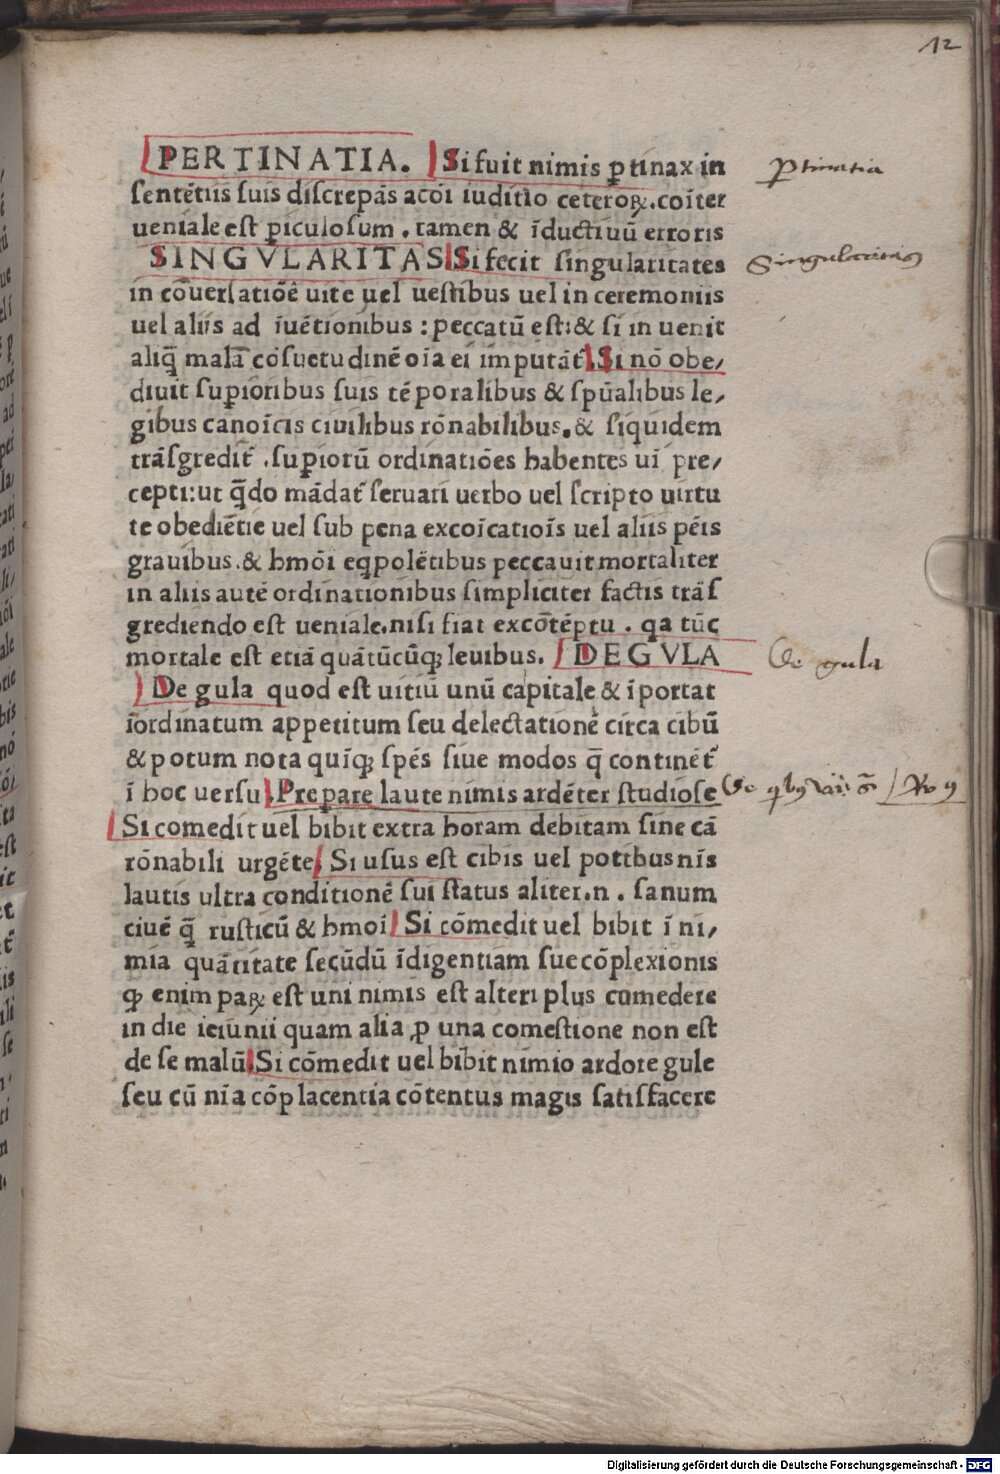 12
PERTINATIA. Si fuit nimis ꝑtinax in
sentētiis suis discrepās acōi iuditio ceteroꝝ. cōiter
ueniale est ꝑiculosum. tamen & īductiuū erroris
SINGVLARITAS Si fecit singularitates
in cōuersatiōē uite uel uestibus uel in ceremoniis
uel aliis ad iuētionibus : peccatū est: & si in uenit
aliq̄ malā cōsuetudinē oīa ei imputāt̄ Si nō obe,
diuit suꝑioribus suis tēporalibus & spūalibus le,
gibus canoīcis ciuilibus rōnabilibus. & siquidem
trāsgredit̄ .suꝑiorū ordinatiōes habentes uī pre,
cepti: ut q̄do mādat̄ seruari uerbo uel scripto uirtu
te obediētie uel sub pena excoīcatiois uel aliis pēis
grauibus. & hmōi eqpolētibus peccauit mortaliter
in aliis autē ordinationibus simpliciter factis trās
grediendo est ueniale. nisi fiat excōtēptu . qa tūc
mortale est etiā quātūcūqꝫ leuibus. DEGVLA
De gula quod est uitiū unū capitale & īportat
īordinatum appetitum seu delectationē circa cibū
& potum nota quīqꝫ spēs siue modos q̄ continēt̄
ī hoc uersu. Prepare laute nimis ardēter studiose
Si comedit uel bibit extra horam debitam sine cā
rōnabili urgēte Si usus est cibis uel potibus nīs
lautis ultra conditionē sui status aliter. n. sanum
ciuē q̄ rusticū & hmoi Si cōmedit uel bibit ī ni,
mia quātitate secūdū īdigentiam sue cōplexionis
ꝙ enim paꝝ est uni nimis est alteri plus comedere
in die ieiunii quam alia ꝓ una comestione non est
de se malū Si cōmedit uel bibit nimio ardore gule
seu cū nīa cōplacentia cōtentus magis satisfacere
ꝑtinatia
Singularitas
De gula
Digitalisierung gefördert durch die Deutsche Forschungsgemeinschaft - DFG